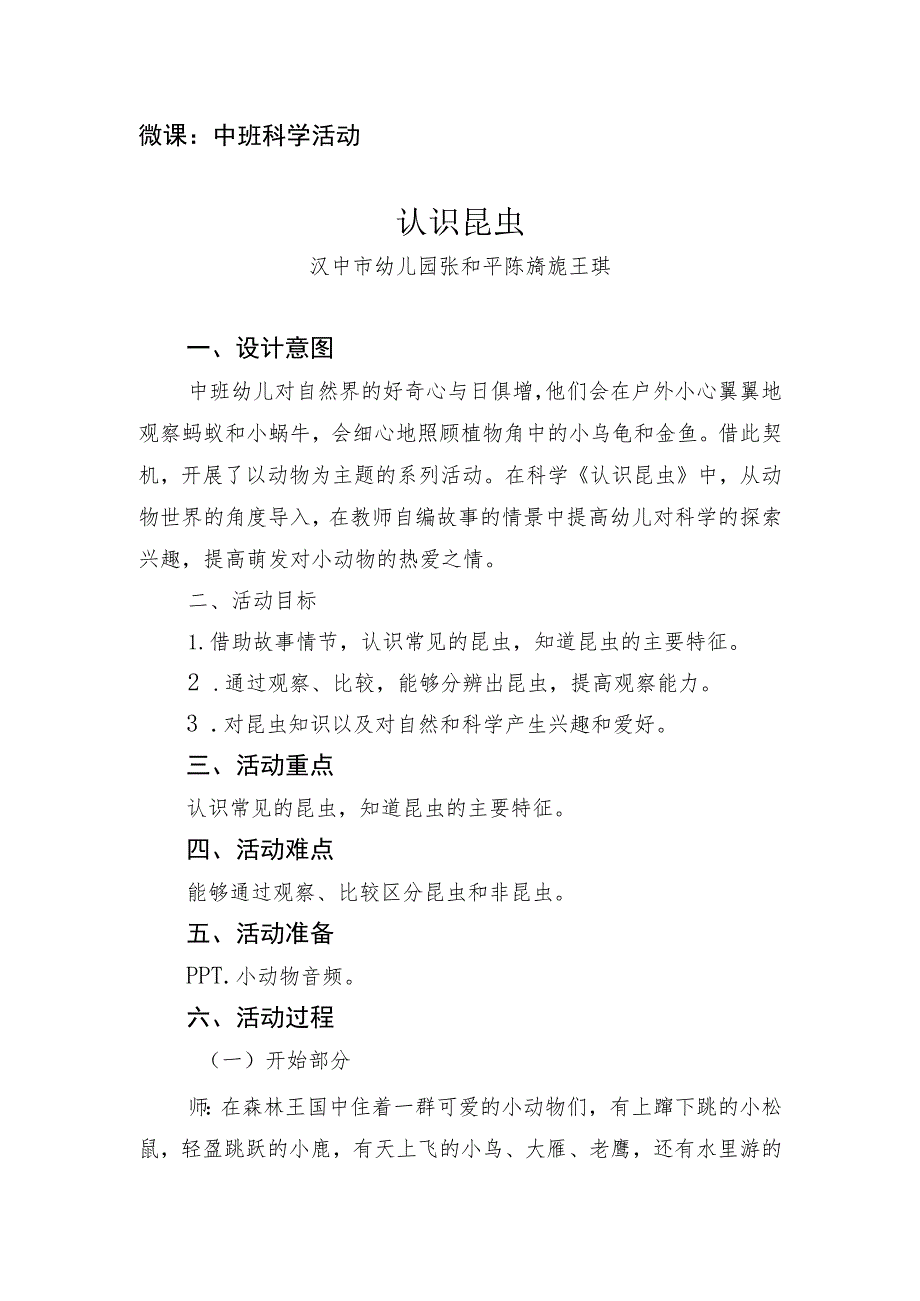 微课：中班科学活动
认识昆虫
汉中市幼儿园张和平陈旖旎王琪
一、设计意图
中班幼儿对自然界的好奇心与日俱增，他们会在户外小心翼翼地
观察蚂蚁和小蜗牛，会细心地照顾植物角中的小乌龟和金鱼。借此契
机，开展了以动物为主题的系列活动。在科学《认识昆虫》中，从动
物世界的角度导入，在教师自编故事的情景中提高幼儿对科学的探索
兴趣，提高萌发对小动物的热爱之情。
二、活动目标
1.借助故事情节，认识常见的昆虫，知道昆虫的主要特征。
2 .通过观察、比较，能够分辨出昆虫，提高观察能力。
3 .对昆虫知识以及对自然和科学产生兴趣和爱好。
三、活动重点
认识常见的昆虫，知道昆虫的主要特征。
四、活动难点
能够通过观察、比较区分昆虫和非昆虫。
五、活动准备
PPT.小动物音频。
六、活动过程
（一）开始部分
师：在森林王国中住着一群可爱的小动物们，有上蹿下跳的小松
鼠，轻盈跳跃的小鹿，有天上飞的小鸟、大雁、老鹰，还有水里游的